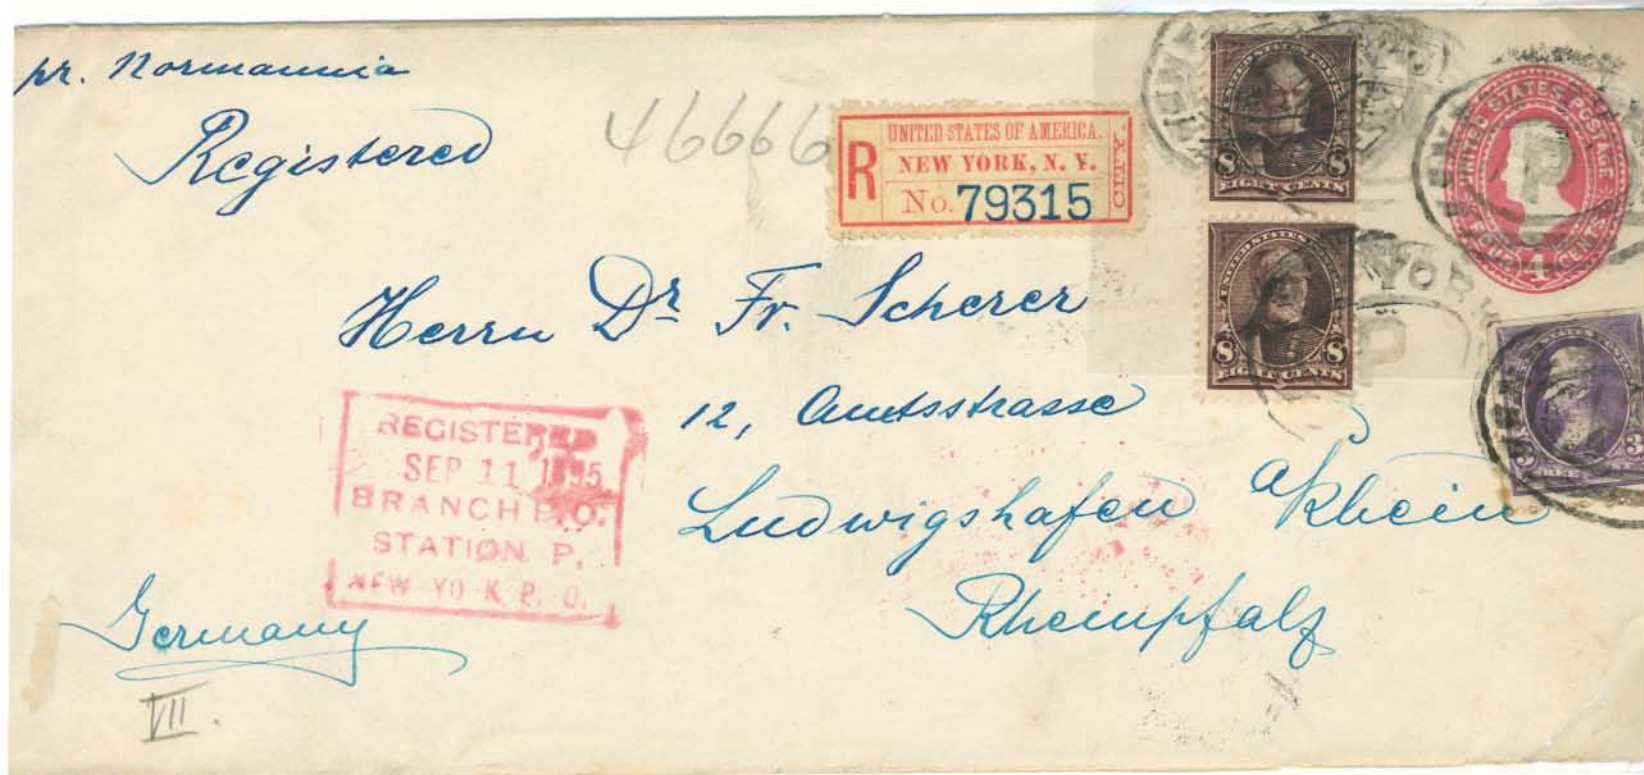 pr. Normannia
Registered
46666
R
UNITED STATES OF AMERICA.
NEW YORK, N. Y.
No. 79315
CITY.
8 8
EIGHT CENTS
UNITED STATES
8 8
EIGHT CENTS
UNITED STATES POSTAGE
4 CENTS
YORK
3 3
Herrn Dr Fr. Scherer
12, Amtsstrasse
Ludwigshafen a Rhein
Rheinpfalz
REGISTERED
SEP 11 1895
BRANCH P.O.
STATION P.
NEW YO K P. O.
Germany
VII.